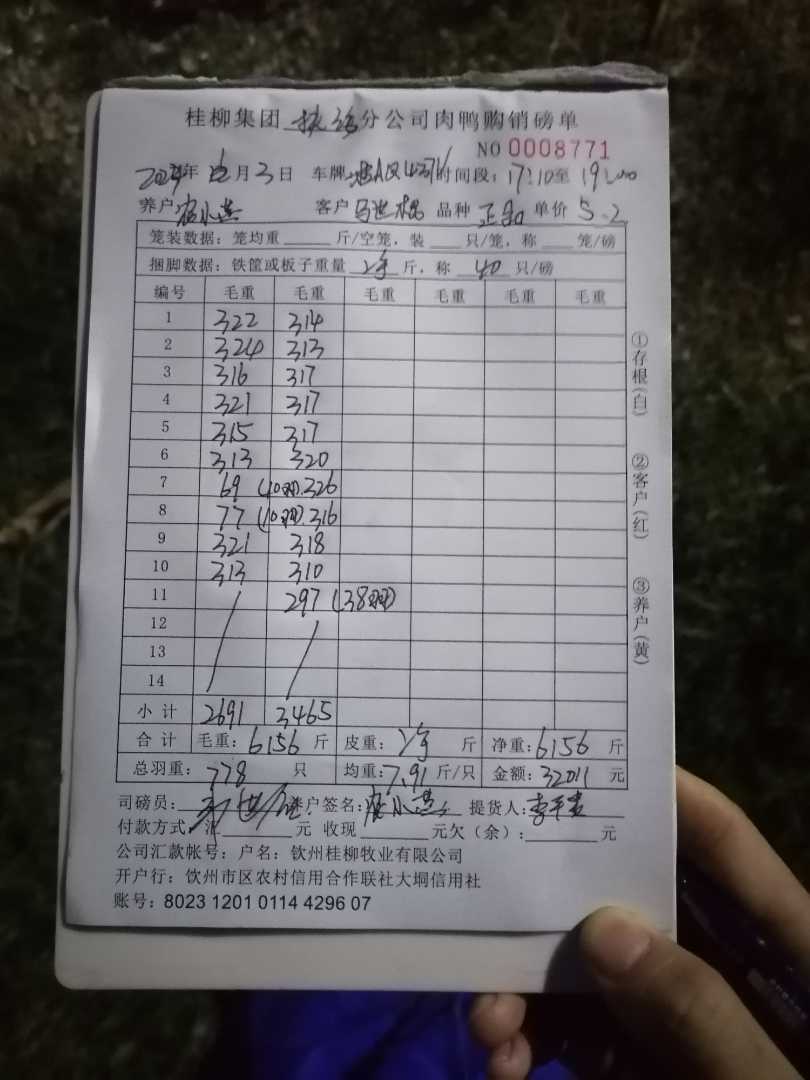 桂柳集团 分公司肉鸭购销磅单
NO 0008771
年 月 3 日 车牌: 时间段: 17:10 至 19:00
养户 小燕 客户 马世 品种 正品 单价 5.2
笼装数据: 笼均重 斤/空笼, 装 只/笼, 称 笼/磅
捆脚数据: 铁筐或板子重量 净 斤, 称 40 只/磅
编号 毛重 毛重 毛重 毛重 毛重 毛重
1 322 314
2 324 313
3 316 317
4 321 317
5 315 317
6 313 320
7 69 (10羽) 326
8 77 (10羽) 316
9 321 318
10 313 310
11 297 (38羽)
12
13
14
小计 2691 3465
合计 毛重: 6156 斤 皮重: 净 斤 净重: 6156 斤
总羽重: 778 只 均重: 7.91 斤/只 金额: 32011 元
司磅员: 养户签名: 小燕 提货人: 李
付款方式: 汇 元 收现 元欠(余): 元
公司汇款帐号: 户名: 钦州桂柳牧业有限公司
开户行: 饮州市区农村信用合作联社大垌信用社
账号: 8023 1201 0114 4296 07
①存根(白)
②客户(红)
③养户(黄)